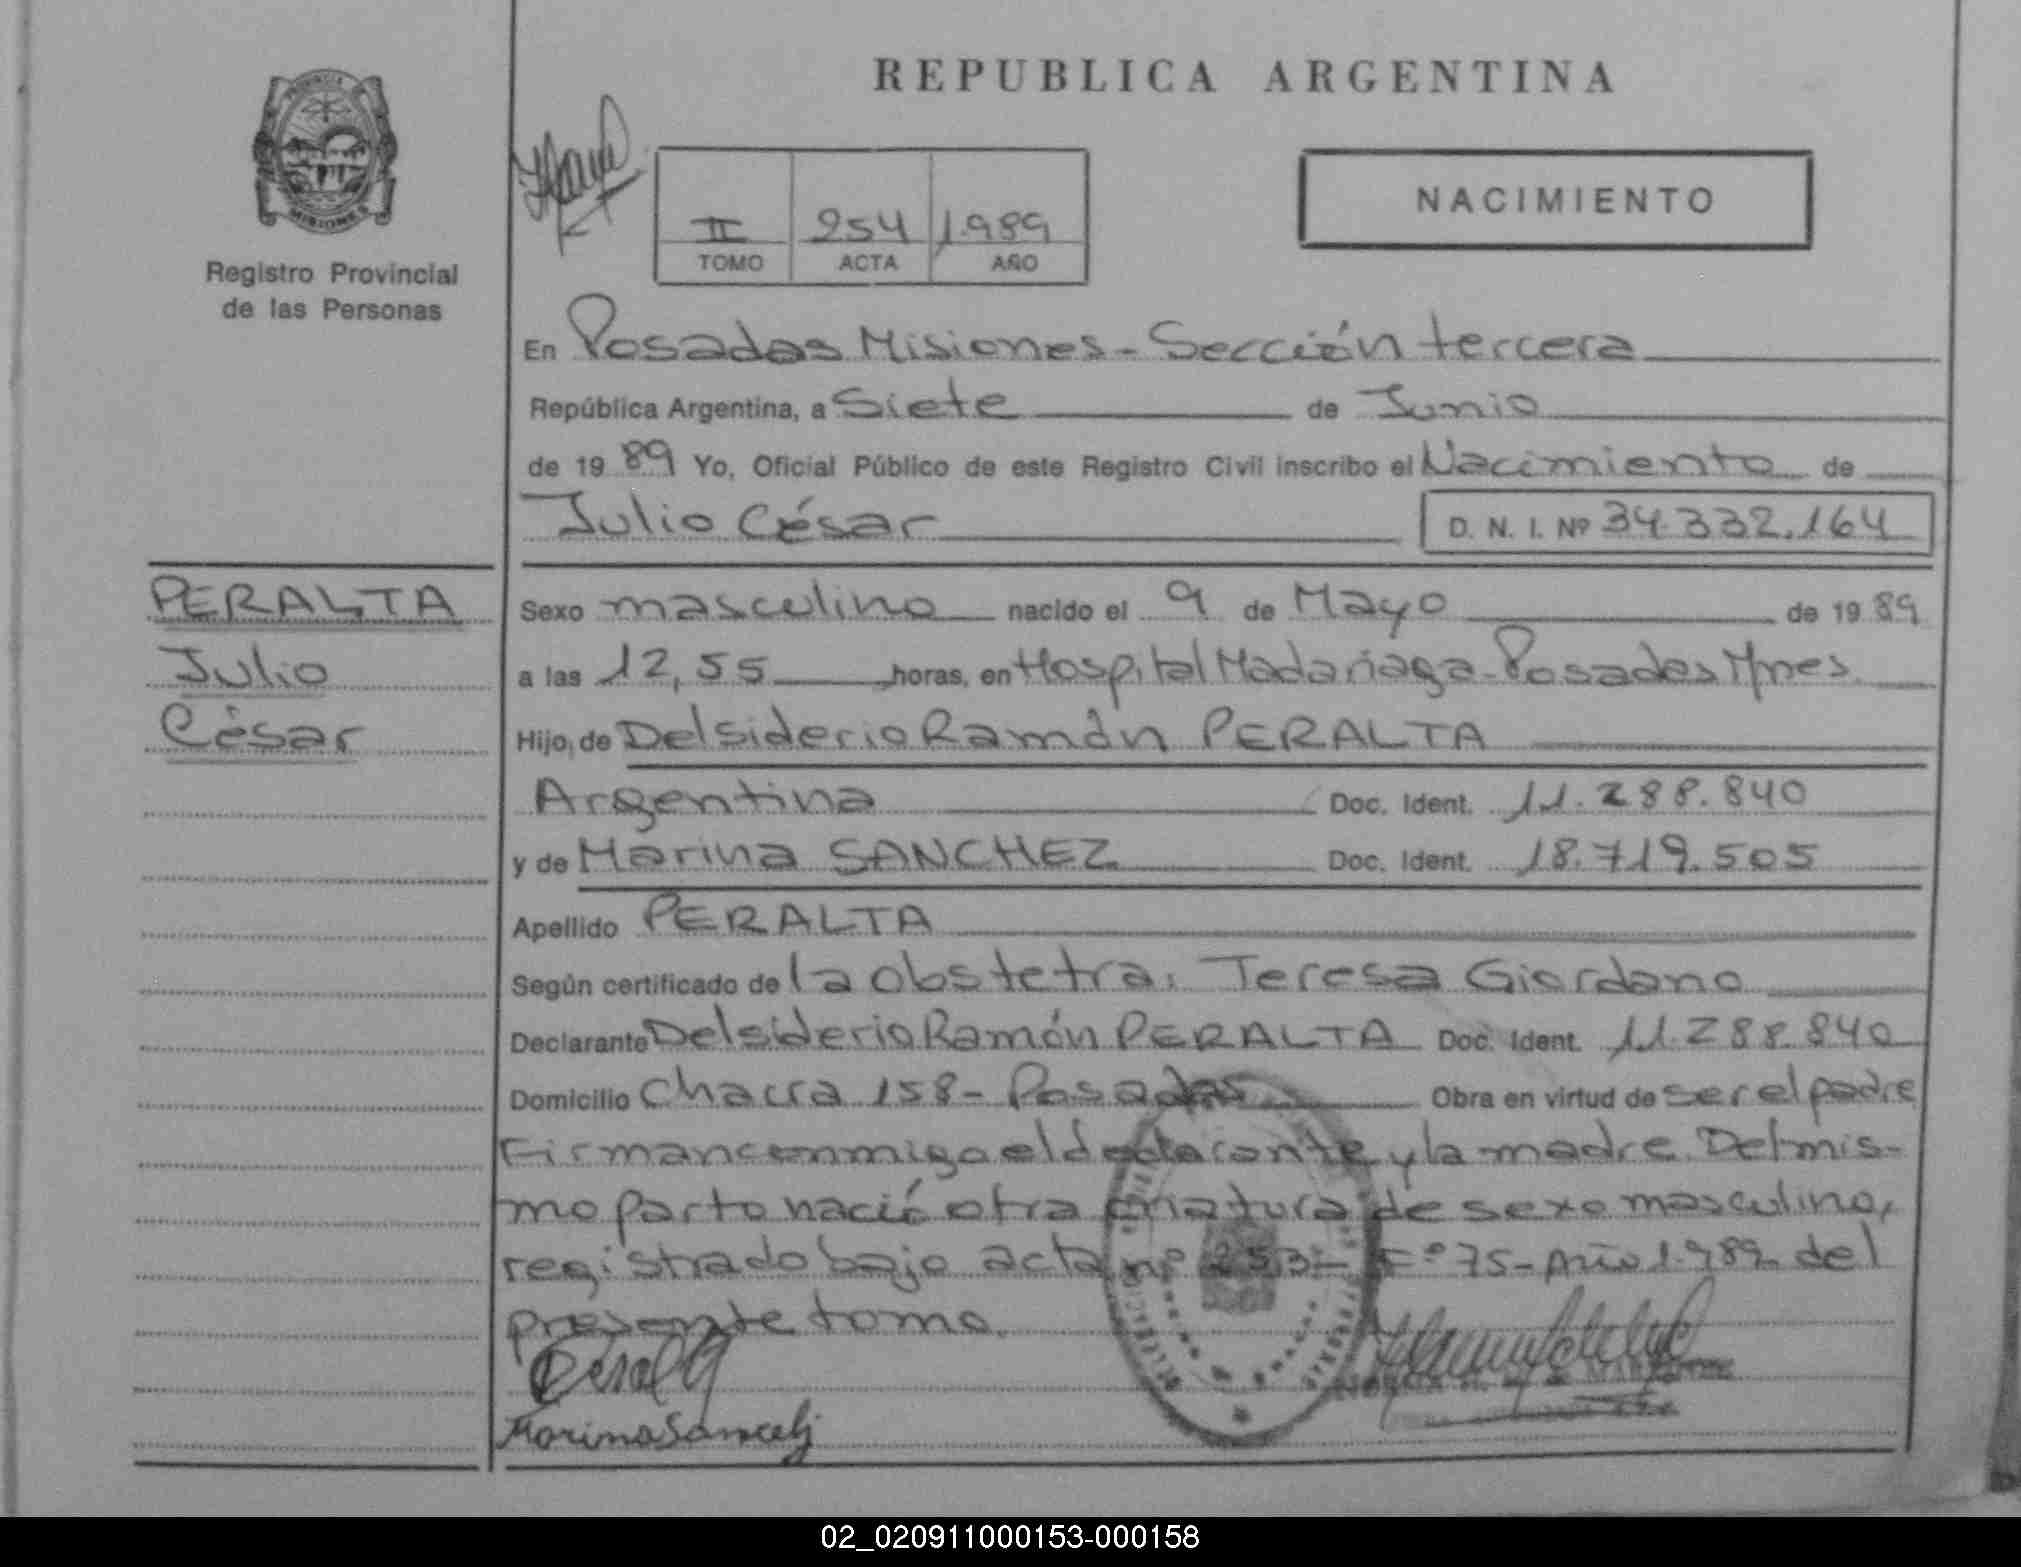 REPUBLICA ARGENTINA
MISIONES
Registro Provincial
de las Personas
II 254 1.989
TOMO ACTA AÑO
NACIMIENTO
En Posadas Misiones - Sección tercera
República Argentina, a Siete de Junio
de 19 89 Yo, Oficial Público de este Registro Civil inscribo el Nacimiento de
Julio César D. N. I. Nº 34.332.164
PERALTA
Julio
César
Sexo masculino nacido el 9 de Mayo de 19 89
a las 12,55 horas, en Hospital Madariaga - Posadas Mnes.
Hijo de Delsiderio Ramón PERALTA
Argentina Doc. Ident. 11.288.840
y de Marina SANCHEZ Doc. Ident. 18.719.505
Apellido PERALTA
Según certificado de la obstetra: Teresa Giordano
Declarante Delsiderio Ramón PERALTA Doc. Ident. 11.288.840
Domicilio Chacra 158 - Posadas Obra en virtud de ser el padre
Firman conmigo el declarante y la madre. Del mis-
mo parto nació otra criatura de sexo masculino,
registrado bajo acta nº 253 - Fº 75 - Año 1.989 del
presente tomo.
02_020911000153-000158